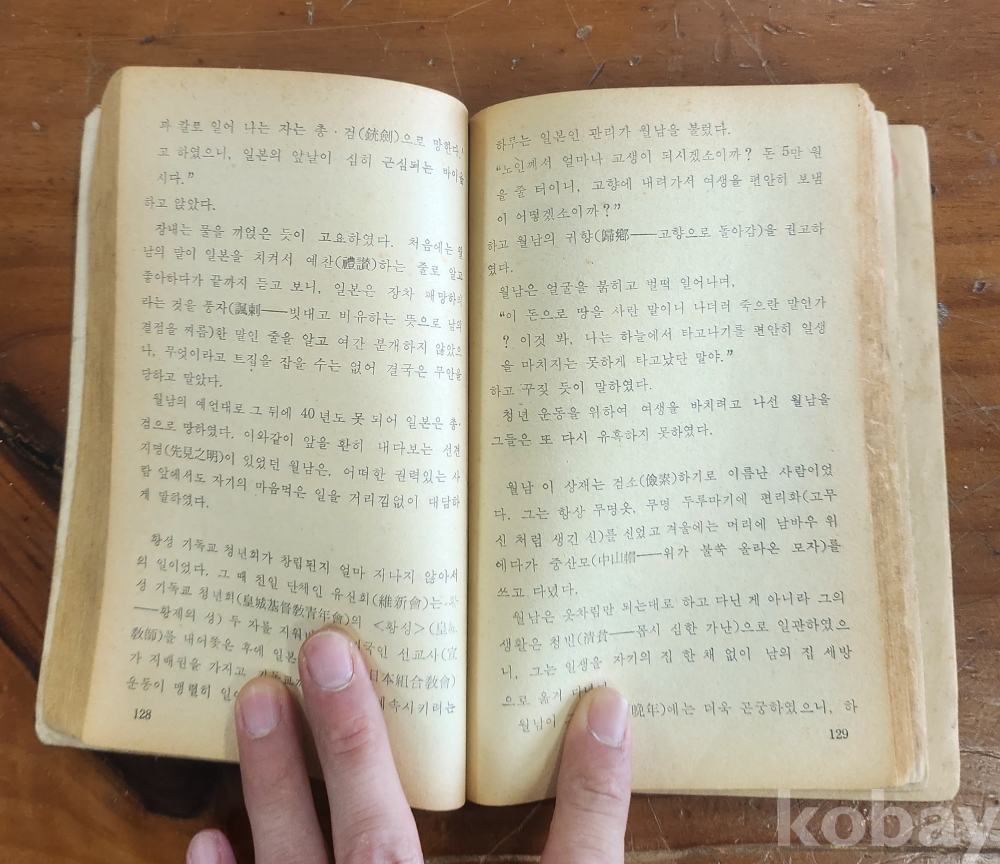 과 칼로 일어 나는 자는 총·검(銃劍)으로 망한다.'
고 하였으니, 일본의 앞날이 심히 근심되는 바이올
시다."
하고 앉았다.
장내는 물을 끼얹은 듯이 고요하였다. 처음에는 월
남의 말이 일본을 치켜서 예찬(禮讃)하는 줄로 알고
좋아하다가 끝까지 듣고 보니, 일본은 장차 패망하리
라는 것을 풍자(諷刺——빗대고 비유하는 뜻으로 남의
결점을 찌름)한 말인 줄을 알고 여간 분개하지 않았으
나, 무엇이라고 트집을 잡을 수는 없어 결국은 무안을
당하고 말았다.
월남의 예언대로 그 뒤에 40년도 못 되어 일본은 총·
검으로 망하였다. 이와같이 앞을 환히 내다보는 선견
지명(先見之明)이 있었던 월남은, 어떠한 권력있는 사
람 앞에서도 자기의 마음먹은 일을 거리낌없이 대담하
게 말하였다.
황성 기독교 청년회가 창립된지 얼마 지나지 않아서
의 일이었다. 그 때 친일 단체인 유신회(維新會)는
성 기독교 청년회(皇城基督敎靑年會)의 <황성>(皇城
——황제의 성) 두 자를 지워 국인 선교사(宣
敎師)를 내어쫓은 후에 일본 日本組合敎會)
가 지배권을 가지고 기독교 예속시키려는
운동이 맹렬히 일어
128
하루는 일본인 관리가 월남을 불렀다.
"노인께서 얼마나 고생이 되시겠소이까? 돈 5만 원
을 줄 터이니, 고향에 내려가서 여생을 편안히 보냄
이 어떻겠소이까?"
하고 월남의 귀향(歸鄕——고향으로 돌아감)을 권고하
였다.
월남은 얼굴을 붉히고 벌떡 일어나며,
"이 돈으로 땅을 사란 말이니 나더러 죽으란 말인가
? 이것 봐, 나는 하늘에서 타고나기를 편안히 일생
을 마치지는 못하게 타고났단 말야."
하고 꾸짖 듯이 말하였다.
청년 운동을 위하여 여생을 바치려고 나선 월남을
그들은 또 다시 유혹하지 못하였다.
월남 이 상재는 검소(儉素)하기로 이름난 사람이었
다. 그는 항상 무명옷, 무명 두루마기에 편리화(고무
신 처럼 생긴 신)를 신었고 겨울에는 머리에 남바우 위
에다가 중산모(中山帽——위가 불쑥 올라온 모자)를
쓰고 다녔다.
월남은 옷차림만 되는대로 하고 다닌 게 아니라 그의
생활은 청빈(清貧——몹시 심한 가난)으로 일관하였으
니, 그는 일생을 자기의 집 한 채 없이 남의 집 세방
으로 옮겨
월남의 (晩年)에는 더욱 곤궁하였으니, 하
129
kobay